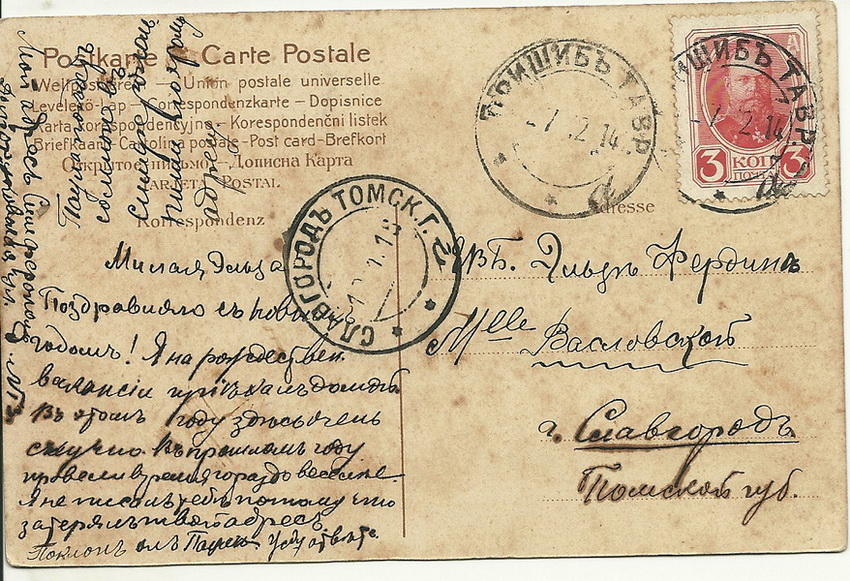 Postkarte — Carte Postale
Weltpostverein — Union postale universelle
Levelező-Lap — Correspondenzkarte — Dopisnice
Karta korespondencyjna — Korespondenční listek
Briefkaart — Cartolina postale — Post card — Brefkort
Открытое письмо — Дописна Карта
Tarjeta Postal
Korrespondenz
Adresse
ПРИШИБЪ ТАВР.
-7 12 14
а
ПРИШИБЪ ТАВР.
-7 12 14
а
3 КОП 3
ПОЧТ
СЛАВГОРОДЪ ТОМСК. Г.
Милая Эльза
Поздравляю съ новымъ
годомъ! Я на рождествен
прiѣхалъ домой
Въ этомъ году здѣсь очень
скучно въ прошломъ году
провели время гораздо веселее.
Я не писалъ тебѣ потому что
затерялъ твой адресъ
Поклонъ отъ
Мой адресъ Симферополь
пиши
адресу
ЕВБ. Фердинъ
Mlle Васловской
г. Славгородъ
Томской губ.